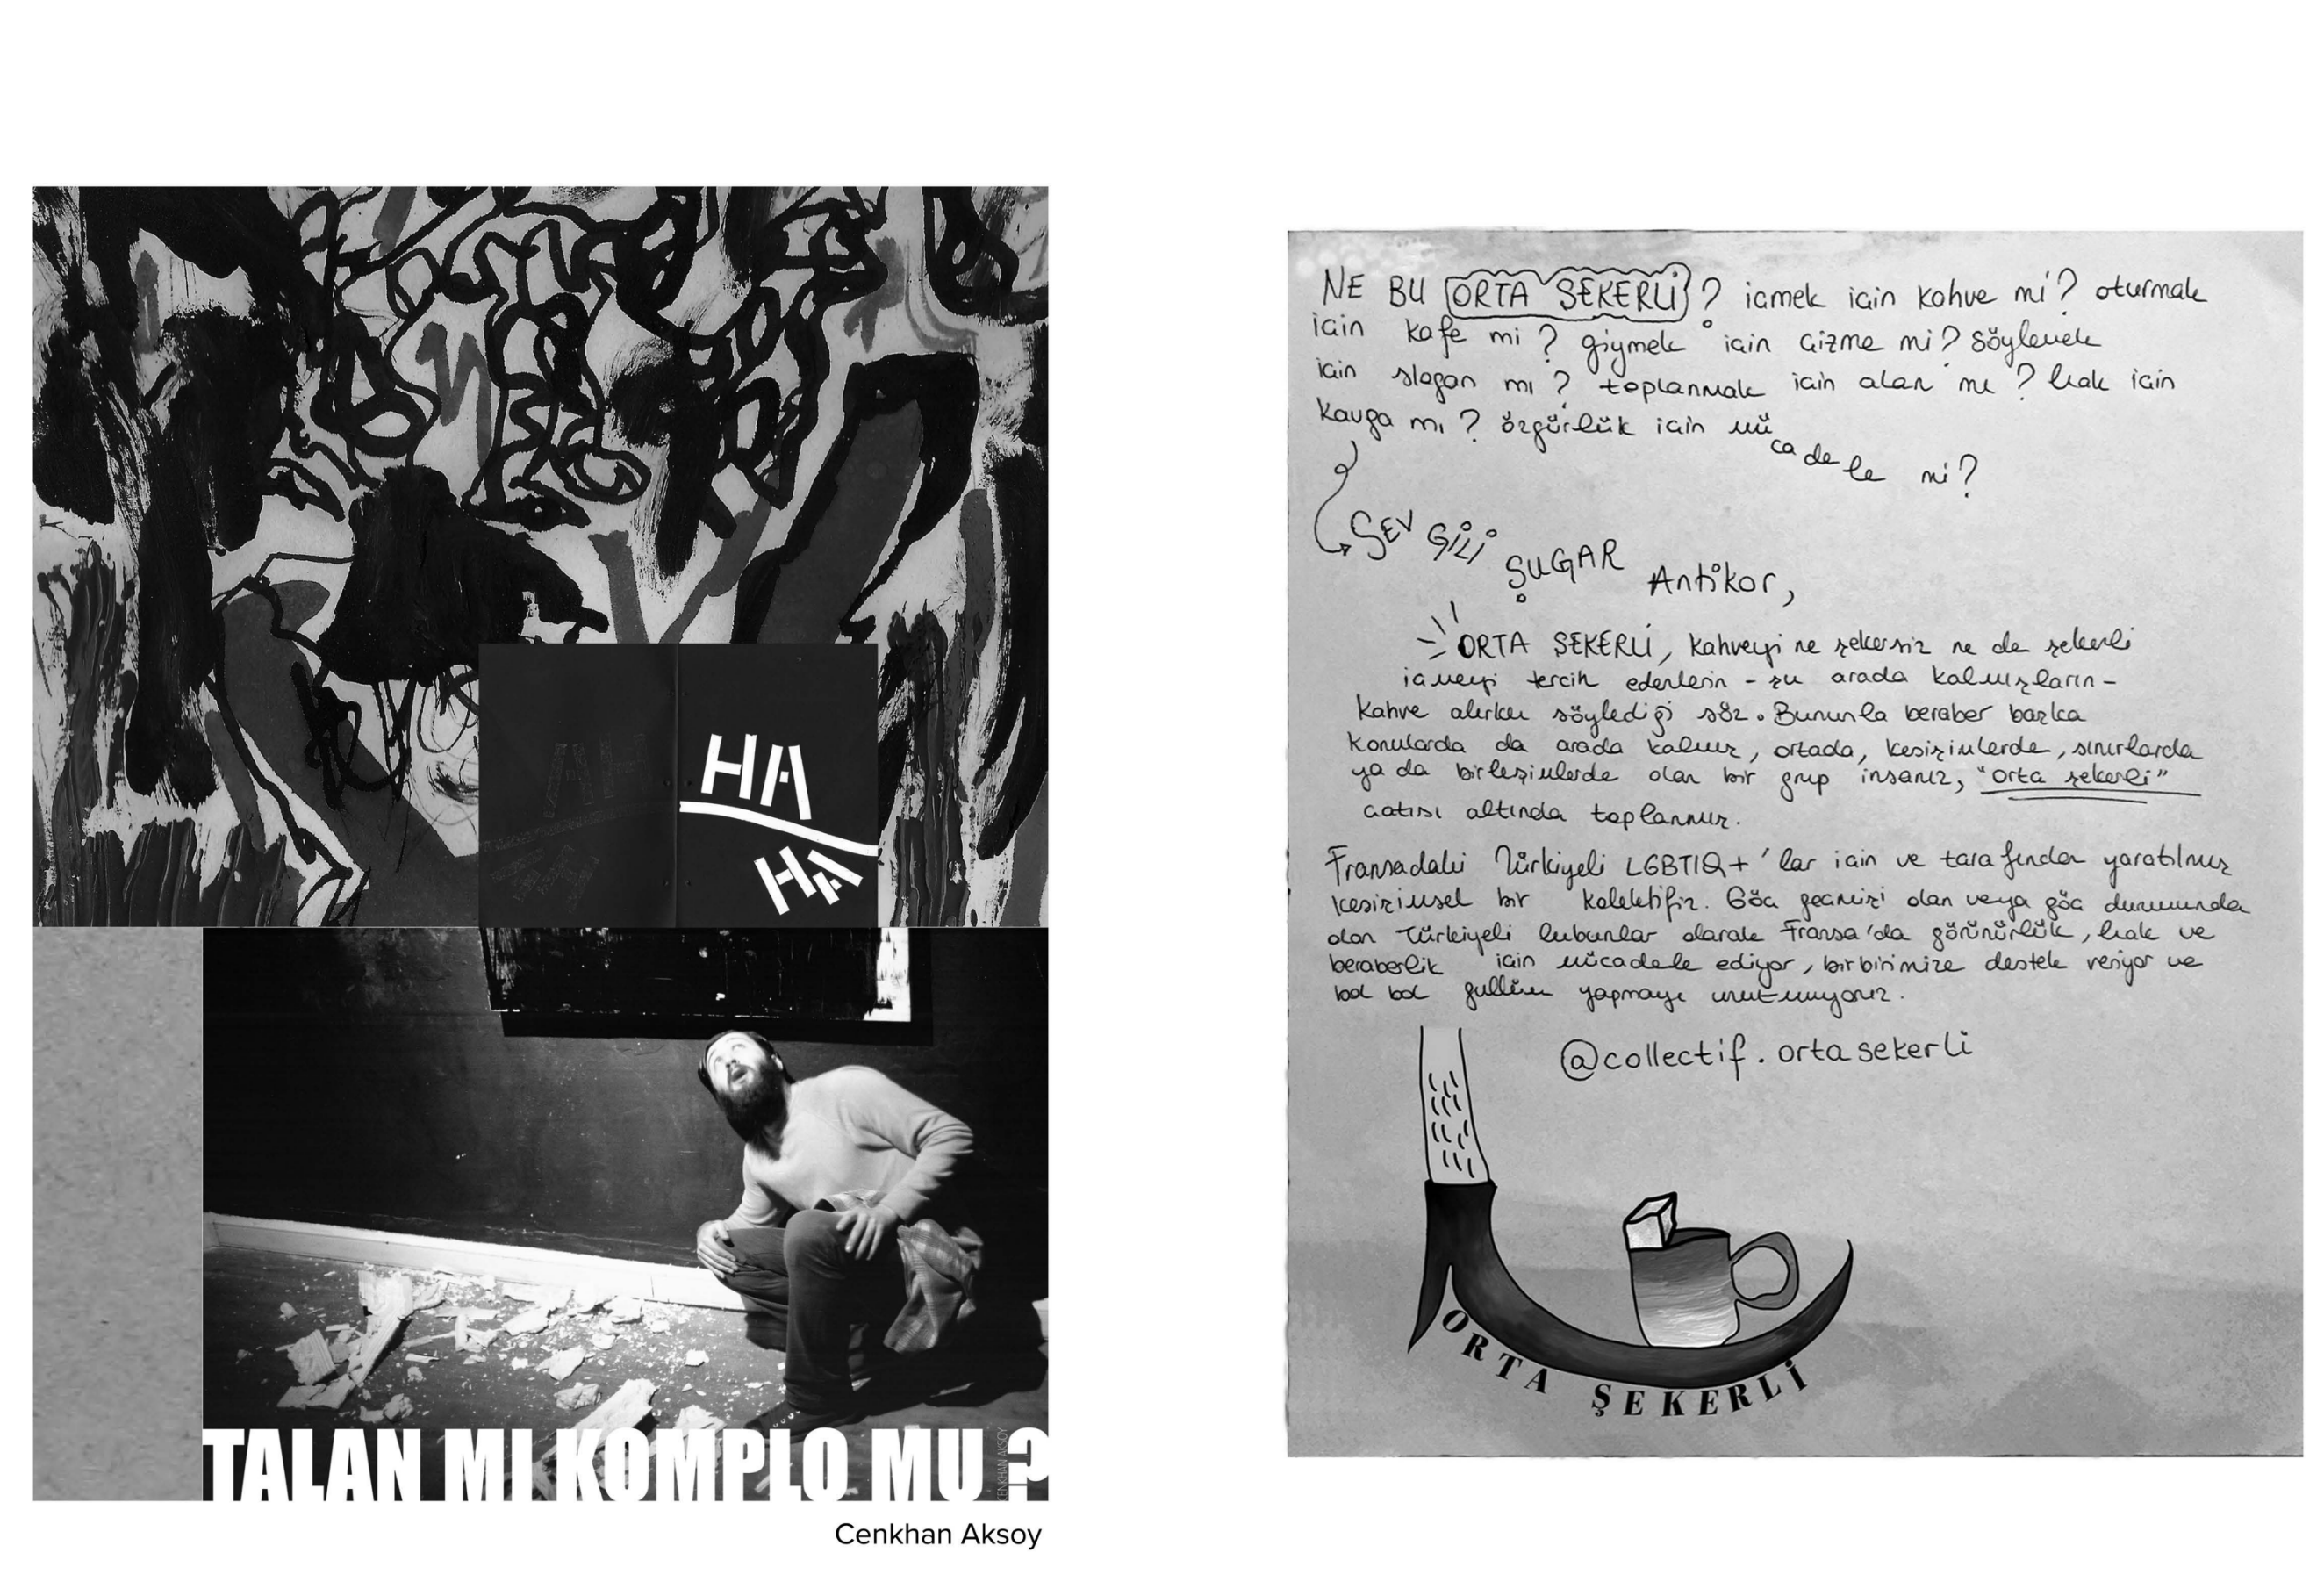 HA
HA
TALAN MI KOMPLO MU ?
CENKHAN AKSOY
Cenkhan Aksoy
NE BU ORTA ŞEKERLİ ? içmek için kahve mi? oturmak
için kafe mi ? giymek için çizme mi? söylemek
için slogan mı ? toplanmak için alan mı ? hak için
kavga mı ? özgürlük için mü
ca de le mi?
SEV GİLİ ŞUGAR Antikor,
ORTA ŞEKERLİ, kahveyi ne şekersiz ne de şekerli
içmeyi tercih edenlerin - şu arada kalmışların -
kahve alırken söylediği söz. Bununla beraber başka
konularda da arada kalmış, ortada, kesişimlerde, sınırlarda
ya da birleşimlerde olan bir grup insanız, "orta şekerli"
çatısı altında toplanmış.
Fransadaki Türkiyeli LGBTIQ+'lar için ve tarafından yaratılmış
kesişimsel bir kolektifiz. Göç geçmişi olan veya göç durumunda
olan Türkiyeli lubunlar olarak Fransa'da görünürlük, hak ve
beraberlik için mücadele ediyor, birbirimize destek veriyor ve
bol bol gullüm yapmayı unutmuyoruz.
@collectif.ortasekerli
ORTA ŞEKERLİ